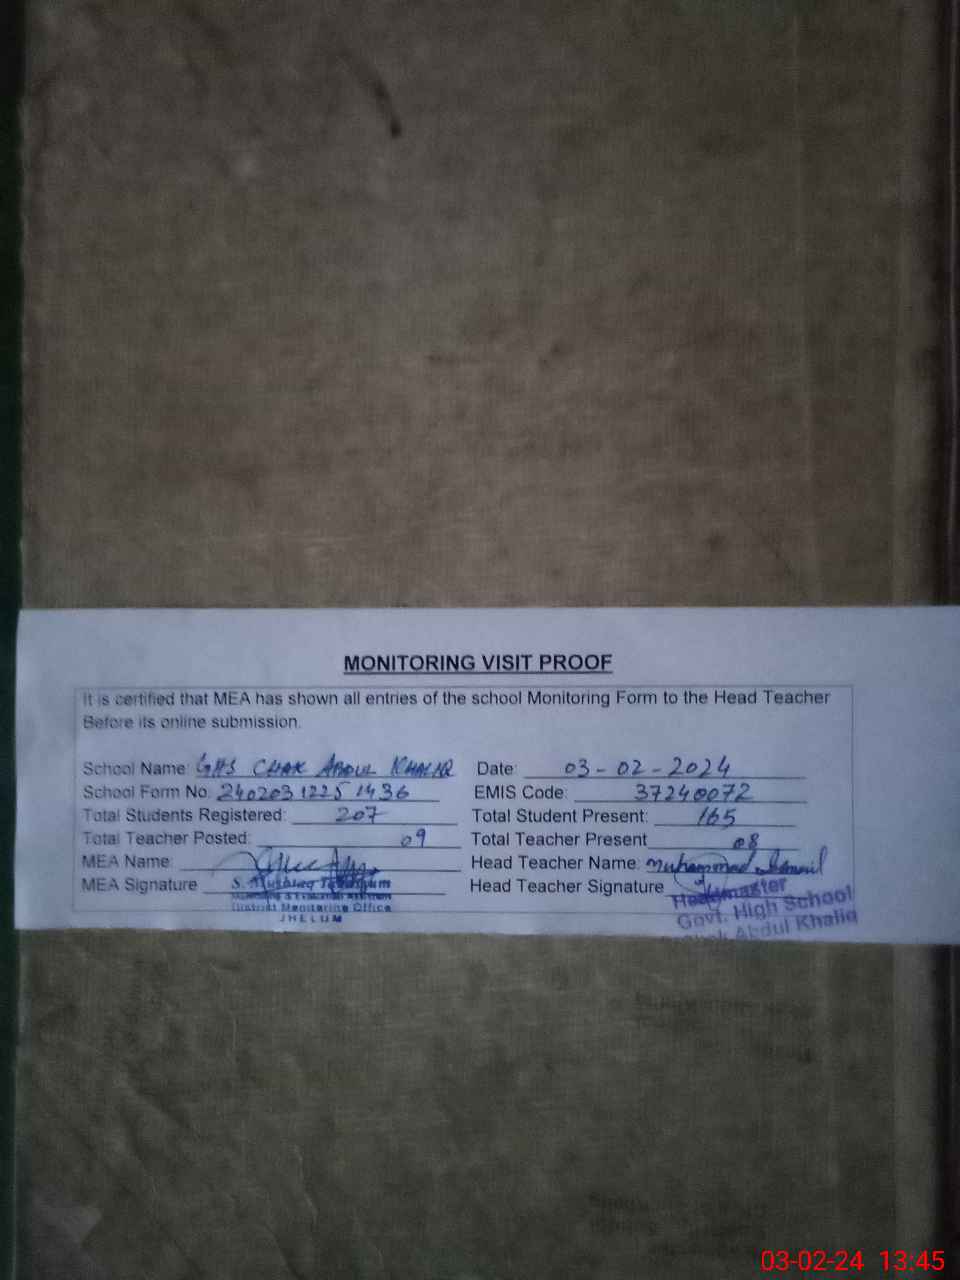 MONITORING VISIT PROOF
It is certified that MEA has shown all entries of the school Monitoring Form to the Head Teacher
Before its online submission.
School Name: GHS CHAK ABDUL KHALIQ Date: 03-02-2024
School Form No: 2402031225 1436 EMIS Code: 37240072
Total Students Registered: 207 Total Student Present: 165
Total Teacher Posted: 09 Total Teacher Present 08
MEA Name: Head Teacher Name: Muhammad
MEA Signature Head Teacher Signature
S. Mushtaq
Monitoring & Evaluation Assistant
District Monitoring Office
JHELUM
Headmaster
Govt. High School
Chak Abdul Khaliq
03-02-24 13:45